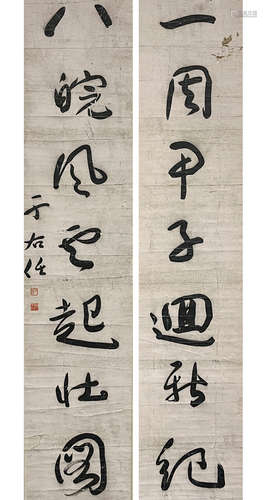 一周甲子迴新紀
八皖風雲起壯圖
于右任